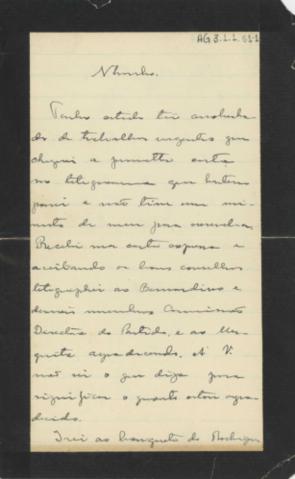 AG 3.1.1.61-1
Nhonho.
Tenho estado tão assoberba
do de trabalhos urgentes que
cheguei a prometter carta
no telegramma que hontem
passei e não tive um mi-
nuto de meu para escrevel-a.
Recebi sua carta expressa e
aceitando os bons conselhos
telegraphei ao Bernardino e
demais membros Commissão
Directora do Partido, e ao Mes-
quita agradecendo. A V.
não sei o que diga para
significar o quanto estou agra-
decido.
Irei ao banquete do Rodrigues